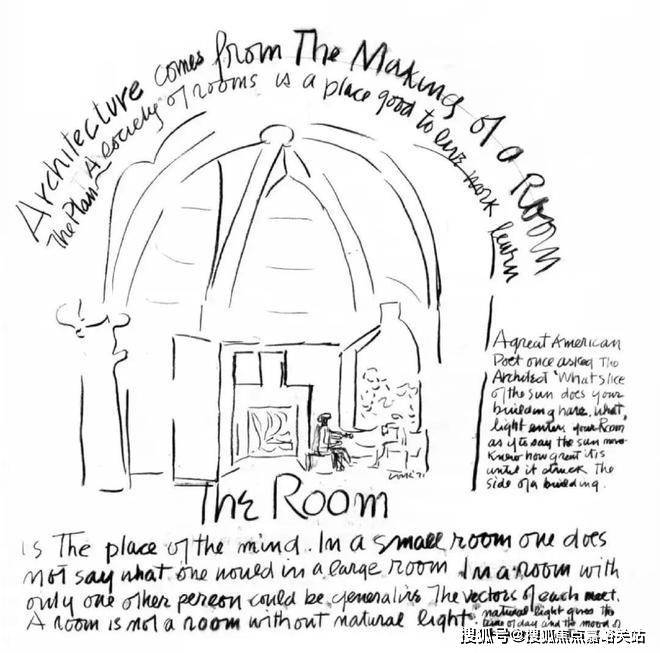 Architecture comes from The Making of a Room
The Plan A society of rooms is a place good to live work learn
A great American
Poet once asked The
Architect 'What slice
of the sun does your
building have. What
light enters your Room
as if to say the sun never
knew how great it is
until it struck the
side of a building.
The Room
is The place of the mind. In a small room one does
not say what one would in a large room In a room with
only one other person could be generative The vectors of each meet.
A room is not a room without natural light.
natural light gives the
time of day and the mood of
搜狐号@搜狐焦点嘉峪关站